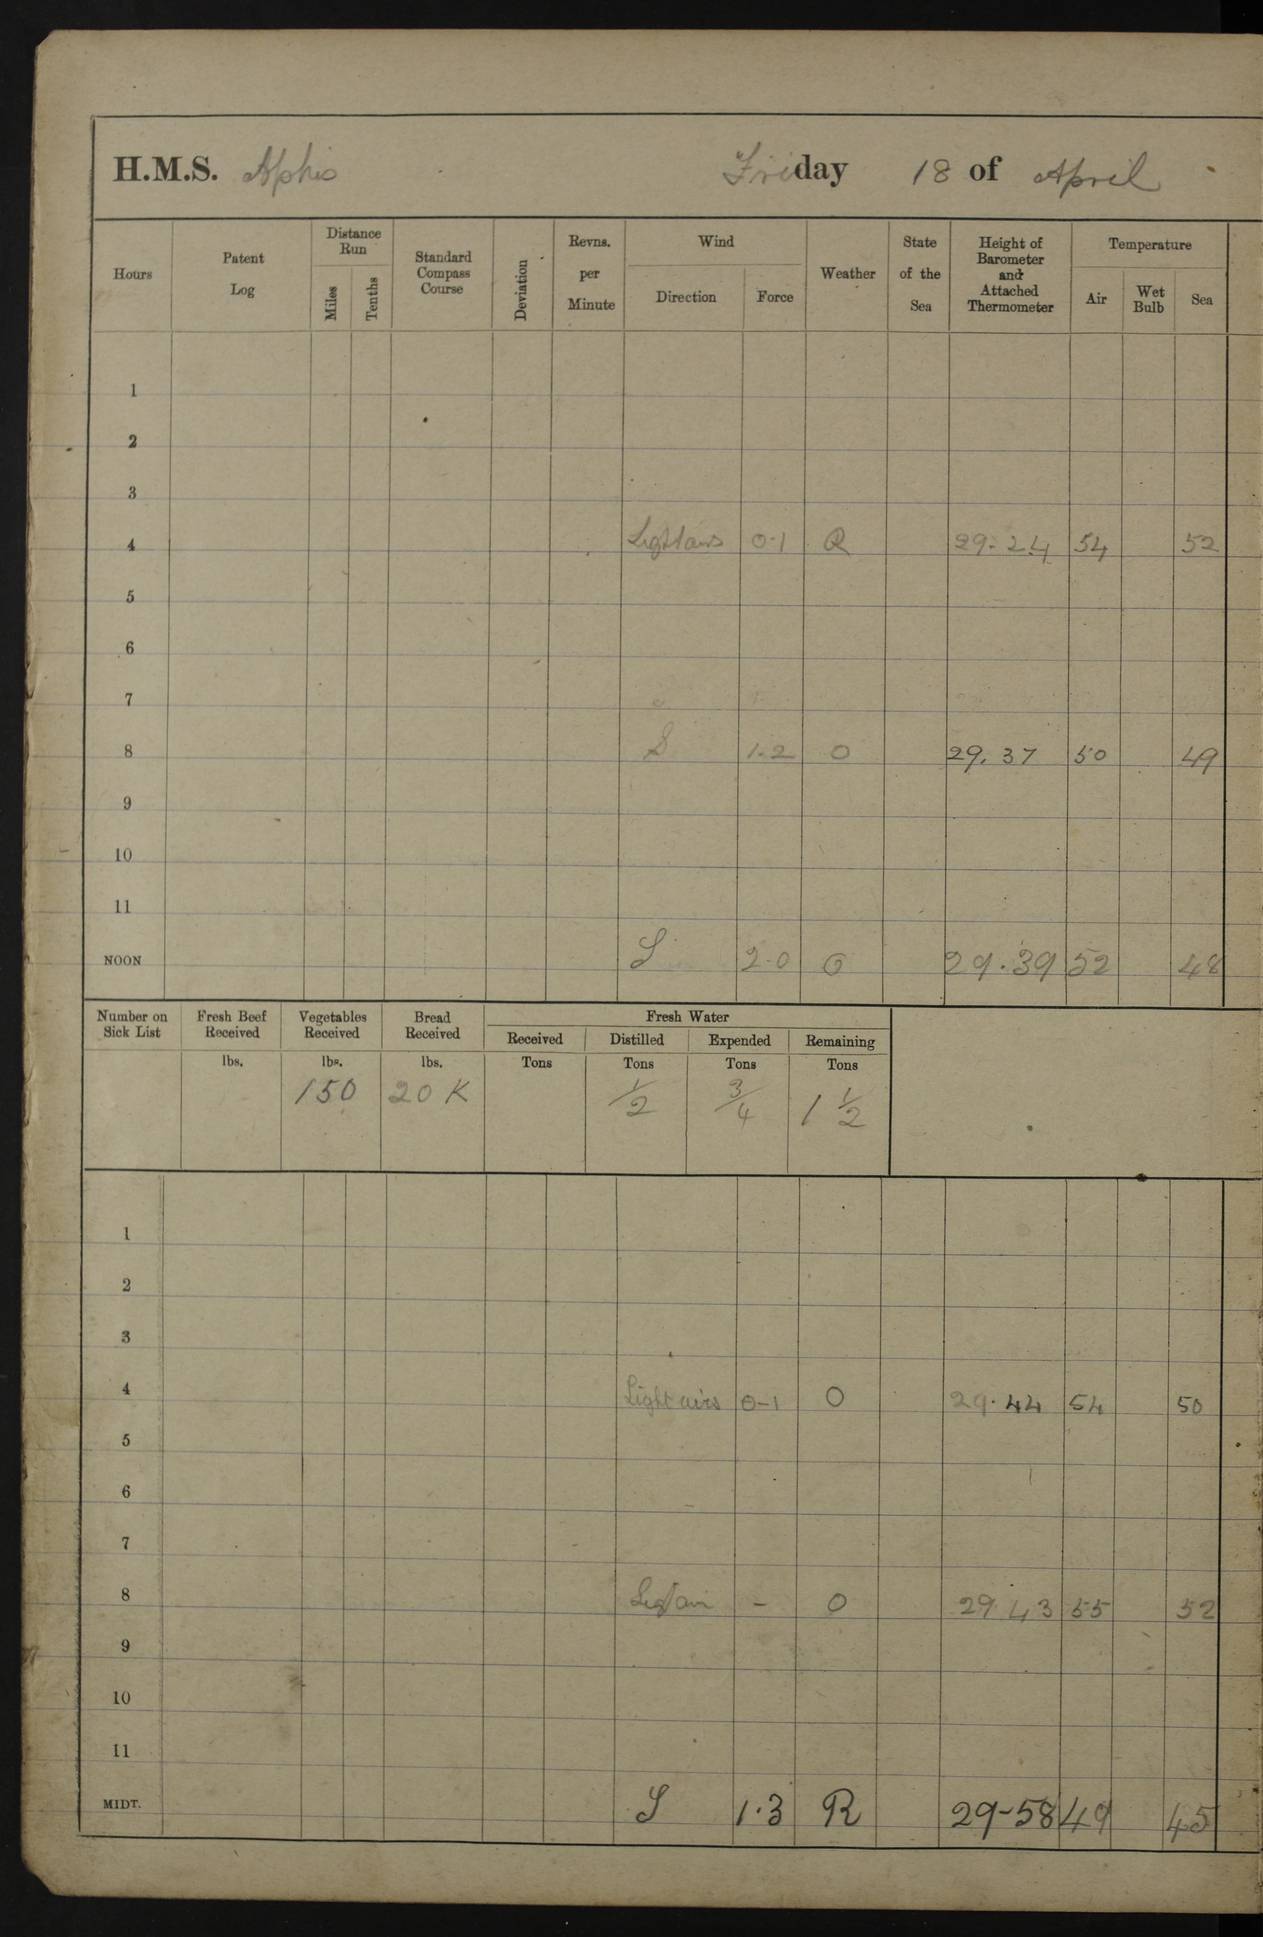 H.M.S. Aphis Friday 18 of April
Hours Patent Log Distance Run Miles Tenths Standard Compass Course Deviation Revns. per Minute Wind Direction Force Weather State of the Sea Height of Barometer and Attached Thermometer Temperature Air Wet Bulb Sea
1
2
3
4 Light airs 0-1 R 29.24 54 52
5
6
7
8 S 1-2 O 29.37 50 49
9
10
11
NOON S 2-0 O 29.39 52 48
Number on Sick List Fresh Beef Received Vegetables Received Bread Received Fresh Water
Received Distilled Expended Remaining
lbs. lbs. lbs. Tons Tons Tons Tons
150 20 K 1/2 3/4 1 1/2
1
2
3
4 Light airs 0-1 O 29.44 54 50
5
6
7
8 - O 29 43 55 52
9
10
11
MIDT. S 1.3 R 29-58 49 45